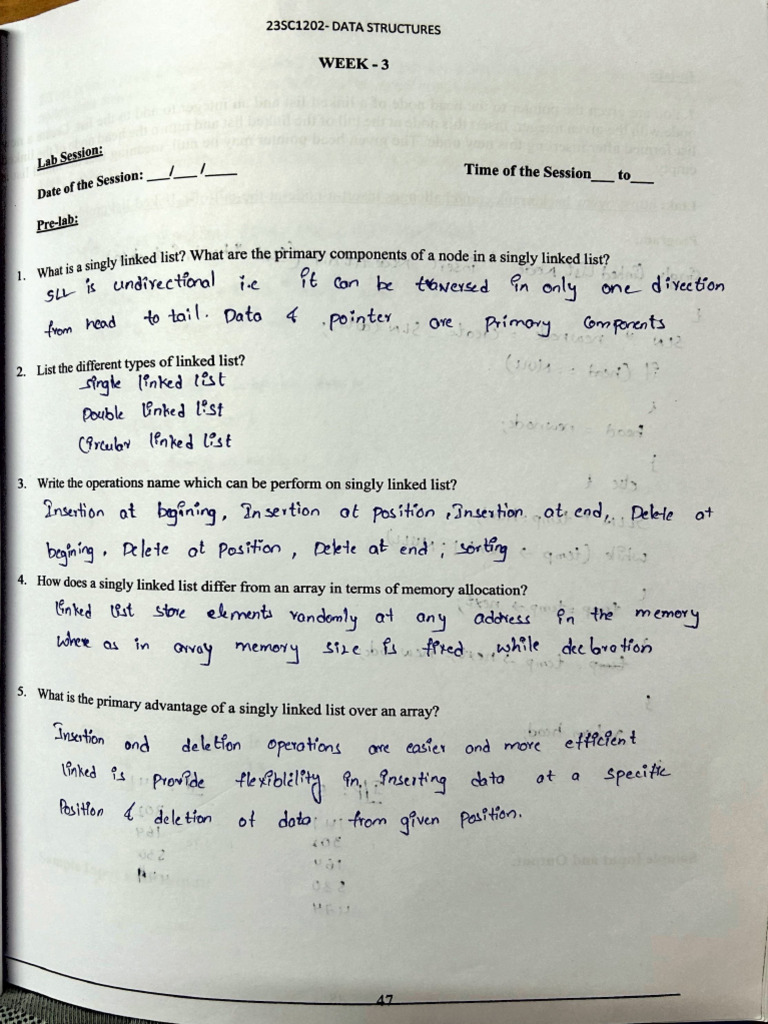 23SC1202- DATA STRUCTURES
WEEK - 3
Lab Session:
Date of the Session: ___/___/____
Time of the Session___ to___
Pre-lab:
1. What is a singly linked list? What are the primary components of a node in a singly linked list?
SLL is undirectional i.e it can be traversed in only one direction
from head to tail. Data & pointer are primary components
2. List the different types of linked list?
single linked list
Double linked list
Circular linked list
3. Write the operations name which can be perform on singly linked list?
Insertion at begining, Insertion at position, Insertion at end, Delete at
begining, Delete at position, Delete at end, sorting.
4. How does a singly linked list differ from an array in terms of memory allocation?
linked list store elements randomly at any address in the memory
where as in array memory size is fixed while declaration
5. What is the primary advantage of a singly linked list over an array?
Insertion and deletion operations are easier and more efficient
linked is provide flexiblility in inserting data at a specific
position & deletion of data from given position.
47